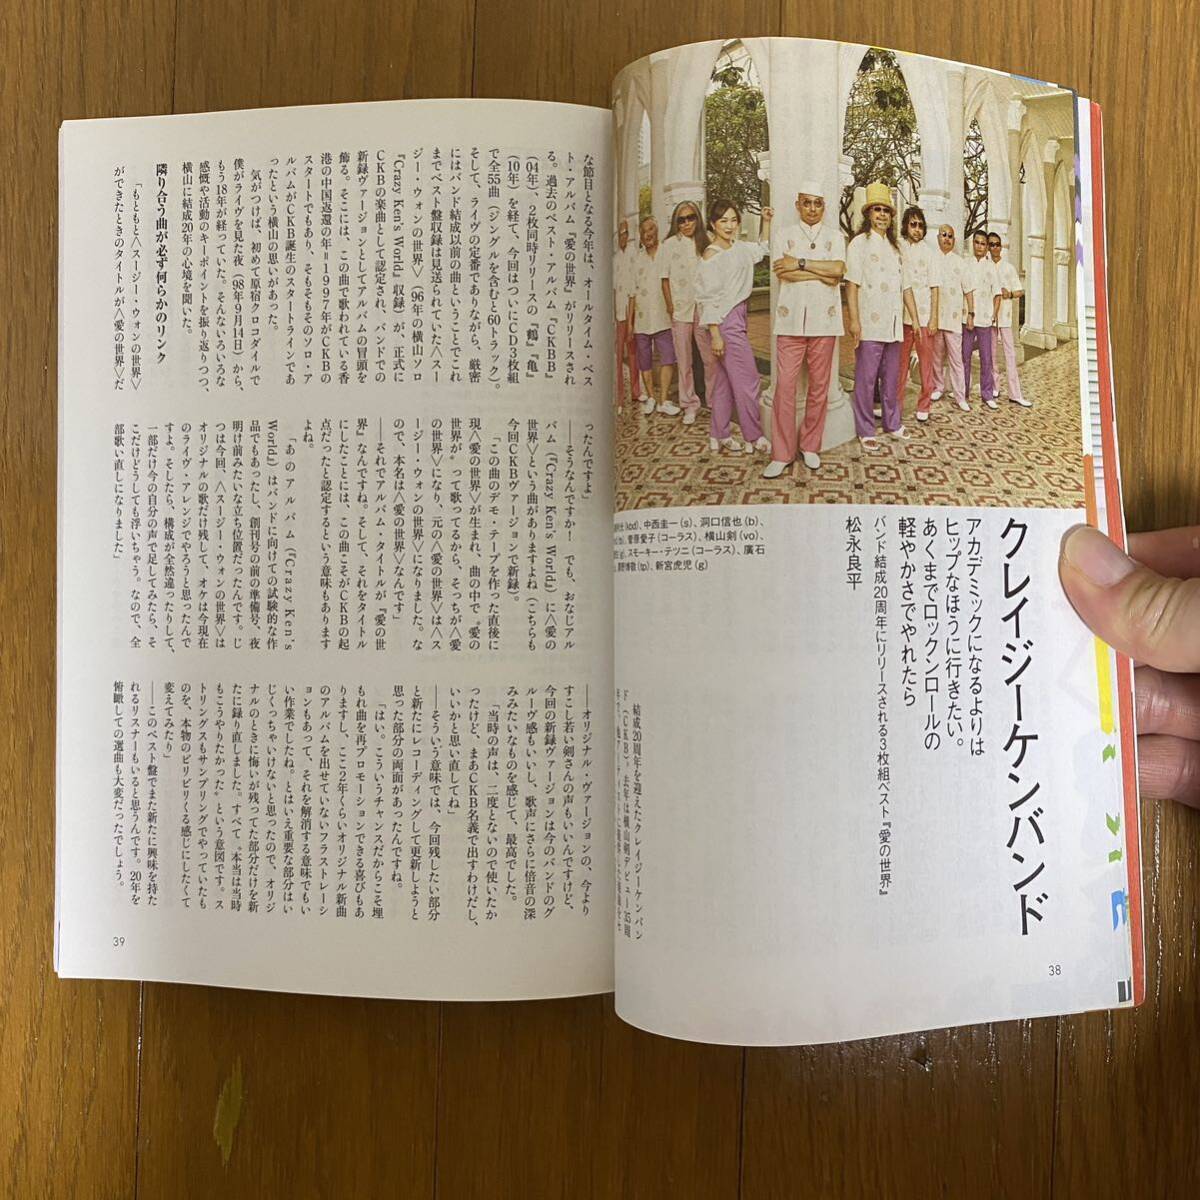 クレイジーケンバンド
アカデミックになるよりは
ヒップなほうに行きたい。
あくまでロックンロールの
軽やかさでやれたら
バンド結成20周年にリリースされる3枚組ベスト『愛の世界』
松永良平
(kod)、中西圭一(s)、洞口信也(b)、
菅原愛子(コーラス)、横山剣(vo)、
(g)、スモーキー・テツニ(コーラス)、廣石
野博敬(tp)、新宮虎児(g)
結成20周年を迎えたクレイジーケンバン
38
な節目となる今年は、オールタイム・ベス
ト・アルバム『愛の世界』がリリースされ
る。過去のベスト・アルバム『CKBB』
(04年)、2枚同時リリースの『鶴』『亀』
(10年)を経て、今回はついにCD3枚組
で全55曲(ジングルを含むと60トラック)。
そして、ライヴの定番でありながら、厳密
にはバンド結成以前の曲ということでこれ
までベスト盤収録は見送られていた〈スー
ジー・ウォンの世界〉(96年の横山ソロ
『Crazy Ken's World』収録)が、正式に
CKBの楽曲として認定され、バンドでの
新録ヴァージョンとしてアルバムの冒頭を
飾る。そこには、この曲で歌われている香
港の中国返還の年＝1997年がCKBの
スタートでもあり、そもそもそのソロ・ア
ルバムがCKB誕生のスタートラインであ
ったという横山の思いがあった。
気がつけば、初めて原宿クロコダイルで
僕がライヴを見た夜(98年9月14日)から、
もう18年が経っていた。そんないろいろな
感慨や活動のキーポイントを振り返りつつ、
横山に結成20年の心境を聞いた。
隣り合う曲が必ず何らかのリンク
「もともと〈スージー・ウォンの世界〉
ができたときのタイトルが〈愛の世界〉だ
ったんですよ」
――そうなんですか！　でも、おなじアル
バム(『Crazy Ken's World』)に〈愛の
世界〉という曲がありますよね(こちらも
今回CKBヴァージョンで新録)。
「この曲のデモ・テープを作った直後に
現〈愛の世界〉が生まれ、曲の中で〝愛の
世界が〟って歌ってるから、そっちが〈愛
の世界〉になり、元の〈愛の世界〉は〈ス
ージー・ウォンの世界〉になりました。な
ので、本名は〈愛の世界〉なんです」
――それでアルバム・タイトルが『愛の世
界』なんですね。そして、それをタイトル
にしたことには、この曲こそがCKBの起
点だったと認定するという意味もあります
よね。
「あのアルバム(『Crazy Ken's
World』)はバンドに向けての試験的な作
品でもあったし、創刊号の前の準備号、夜
明け前みたいな立ち位置だったんです。じ
つは今回、〈スージー・ウォンの世界〉は
オリジナルの歌だけ残して、オケは今現在
のライヴ・アレンジでやろうと思ったんで
すよ。そしたら、構成が全然違ったりして、
一部だけ今の自分の声で足してみたら、そ
こだけどうしても浮いちゃう。なので、全
部歌い直しになりました」
――オリジナル・ヴァージョンの、今より
すこし若い剣さんの声もいいんですけど、
今回の新録ヴァージョンは今のバンドのグ
ルーヴ感もいいし、歌声にさらに倍音の深
みみたいなものを感じて、最高でした。
「当時の声は、二度とないので使いたか
ったけど、まあCKB名義で出すわけだし、
いいかと思い直してね」
――そういう意味では、今回残したい部分
と新たにレコーディングして更新しようと
思った部分の両面があったんですね。
「はい。こういうチャンスだからこそ埋
もれ曲を再プロモーションできる喜びもあ
りますし、ここ2年くらいオリジナル新曲
のアルバムを出せていないフラストレーシ
ョンもあって、それを解消する意味でもい
い作業でしたね。とはいえ重要な部分はい
じくっちゃいけないと思ったので、オリジ
ナルのときに悔いが残ってた部分だけを新
たに録り直しました。すべて〝本当は当時
もこうやりたかった〟という意図です。ス
トリングスもサンプリングでやっていたも
のを、本物のビリビリくる感じにしたくて
変えてみたり」
――このベスト盤でまた新たに興味を持た
れるリスナーもいると思うんです。20年を
俯瞰しての選曲も大変だったでしょう。
39